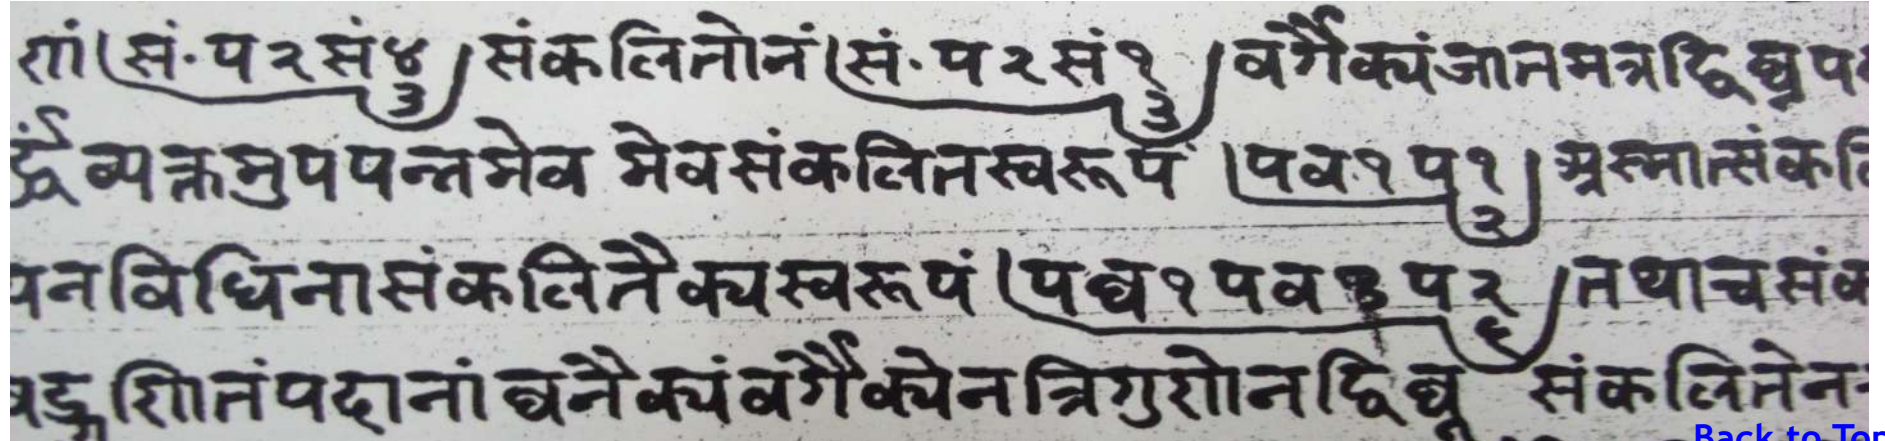 णां (सं॰प२सं४/३) संकलितोनं (सं॰प२सं१/३) वर्गैक्यंजातमत्रद्विघ्नप
र्द्धं व्यक्तमुपपन्नमेव मेवसंकलितस्वरूपं (पव१प१/२) अस्मात्संकलि
पनविधिनासंकलितैक्यस्वरूपं (पघ१पव३प२/६) तथाचसंक
षड्गुणितंपदानांघनैक्यंवर्गैक्येनत्रिगुणेनद्विघ्न संकलितेन
Back to Top